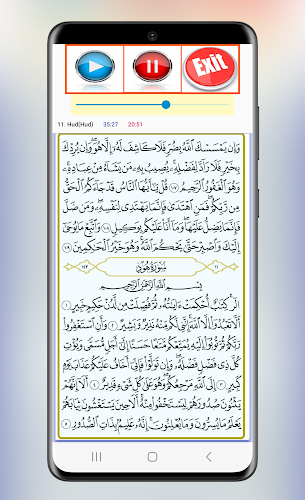 Exit
11. Hud(Hud) 35:27 20:51
وَإِن يَمْسَسْكَ ٱللَّهُ بِضُرٍّ فَلَا كَاشِفَ لَهُۥٓ إِلَّا هُوَ ۖ وَإِن يُرِدْكَ
بِخَيْرٍ فَلَا رَآدَّ لِفَضْلِهِۦ ۚ يُصِيبُ بِهِۦ مَن يَشَآءُ مِنْ عِبَادِهِۦ ۚ
وَهُوَ ٱلْغَفُورُ ٱلرَّحِيمُ ١٠٧ قُلْ يَٰٓأَيُّهَا ٱلنَّاسُ قَدْ جَآءَكُمُ ٱلْحَقُّ
مِن رَّبِّكُمْ ۖ فَمَنِ ٱهْتَدَىٰ فَإِنَّمَا يَهْتَدِى لِنَفْسِهِۦ ۖ وَمَن ضَلَّ
فَإِنَّمَا يَضِلُّ عَلَيْهَا ۖ وَمَآ أَنَا۠ عَلَيْكُم بِوَكِيلٍ ١٠٨ وَٱتَّبِعْ مَا يُوحَىٰٓ
إِلَيْكَ وَٱصْبِرْ حَتَّىٰ يَحْكُمَ ٱللَّهُ ۚ وَهُوَ خَيْرُ ٱلْحَٰكِمِينَ ١٠٩
سُورَةُ هُودٍ
بِسْمِ ٱللَّهِ ٱلرَّحْمَٰنِ ٱلرَّحِيمِ
الٓر ۚ كِتَٰبٌ أُحْكِمَتْ ءَايَٰتُهُۥ ثُمَّ فُصِّلَتْ مِن لَّدُنْ حَكِيمٍ خَبِيرٍ ١
أَلَّا تَعْبُدُوٓا۟ إِلَّا ٱللَّهَ ۚ إِنَّنِى لَكُم مِّنْهُ نَذِيرٌ وَبَشِيرٌ ٢ وَأَنِ ٱسْتَغْفِرُوا۟
رَبَّكُمْ ثُمَّ تُوبُوٓا۟ إِلَيْهِ يُمَتِّعْكُم مَّتَٰعًا حَسَنًا إِلَىٰٓ أَجَلٍ مُّسَمًّى وَيُؤْتِ
كُلَّ ذِى فَضْلٍ فَضْلَهُۥ ۖ وَإِن تَوَلَّوْا۟ فَإِنِّىٓ أَخَافُ عَلَيْكُمْ عَذَابَ يَوْمٍ
كَبِيرٍ ٣ إِلَى ٱللَّهِ مَرْجِعُكُمْ ۖ وَهُوَ عَلَىٰ كُلِّ شَىْءٍ قَدِيرٌ ٤ أَلَآ إِنَّهُمْ
يَثْنُونَ صُدُورَهُمْ لِيَسْتَخْفُوا۟ مِنْهُ ۚ أَلَا حِينَ يَسْتَغْشُونَ ثِيَابَهُمْ
يَعْلَمُ مَا يُسِرُّونَ وَمَا يُعْلِنُونَ ۚ إِنَّهُۥ عَلِيمٌۢ بِذَاتِ ٱلصُّدُورِ ٥